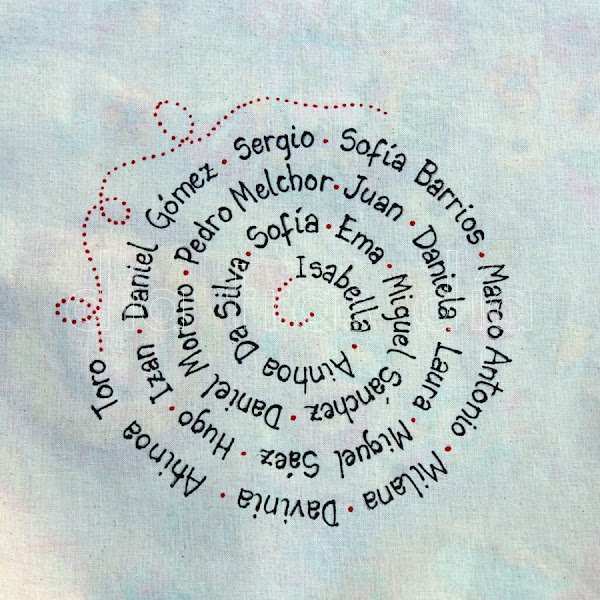 Isabella · Ainhoa Da Silva · Sofía · Ema · Miguel Sánchez · Daniel Moreno · Pedro Melchor · Juan · Daniela · Laura · Miguel Sáez · Hugo · Izan · Daniel Gómez · Sergio · Sofía Barrios · Marco Antonio · Milana · Davinia · Ahinoa Toro